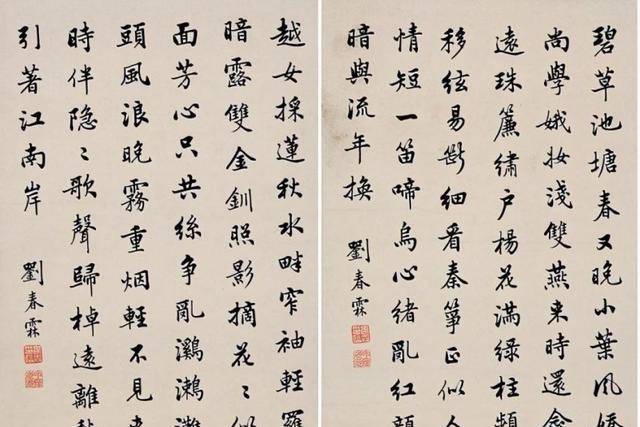 碧草池塘春又晚小葉風嬌
尚學娥妝淺雙燕来時還念
遠珠簾繡户楊花滿綠柱頻
移絃易斷細看秦箏正似人
情短一笛啼烏心緒亂紅顏
暗與流年換
劉春霖
越女採蓮秋水畔窄袖輕羅
暗露雙金釧照影摘花〻似
面芳心只共絲争亂鸂鶒灘
頭風浪晚霧重烟輕不見来
時伴隐〻歌聲歸棹遠離
引著江南岸
劉春霖